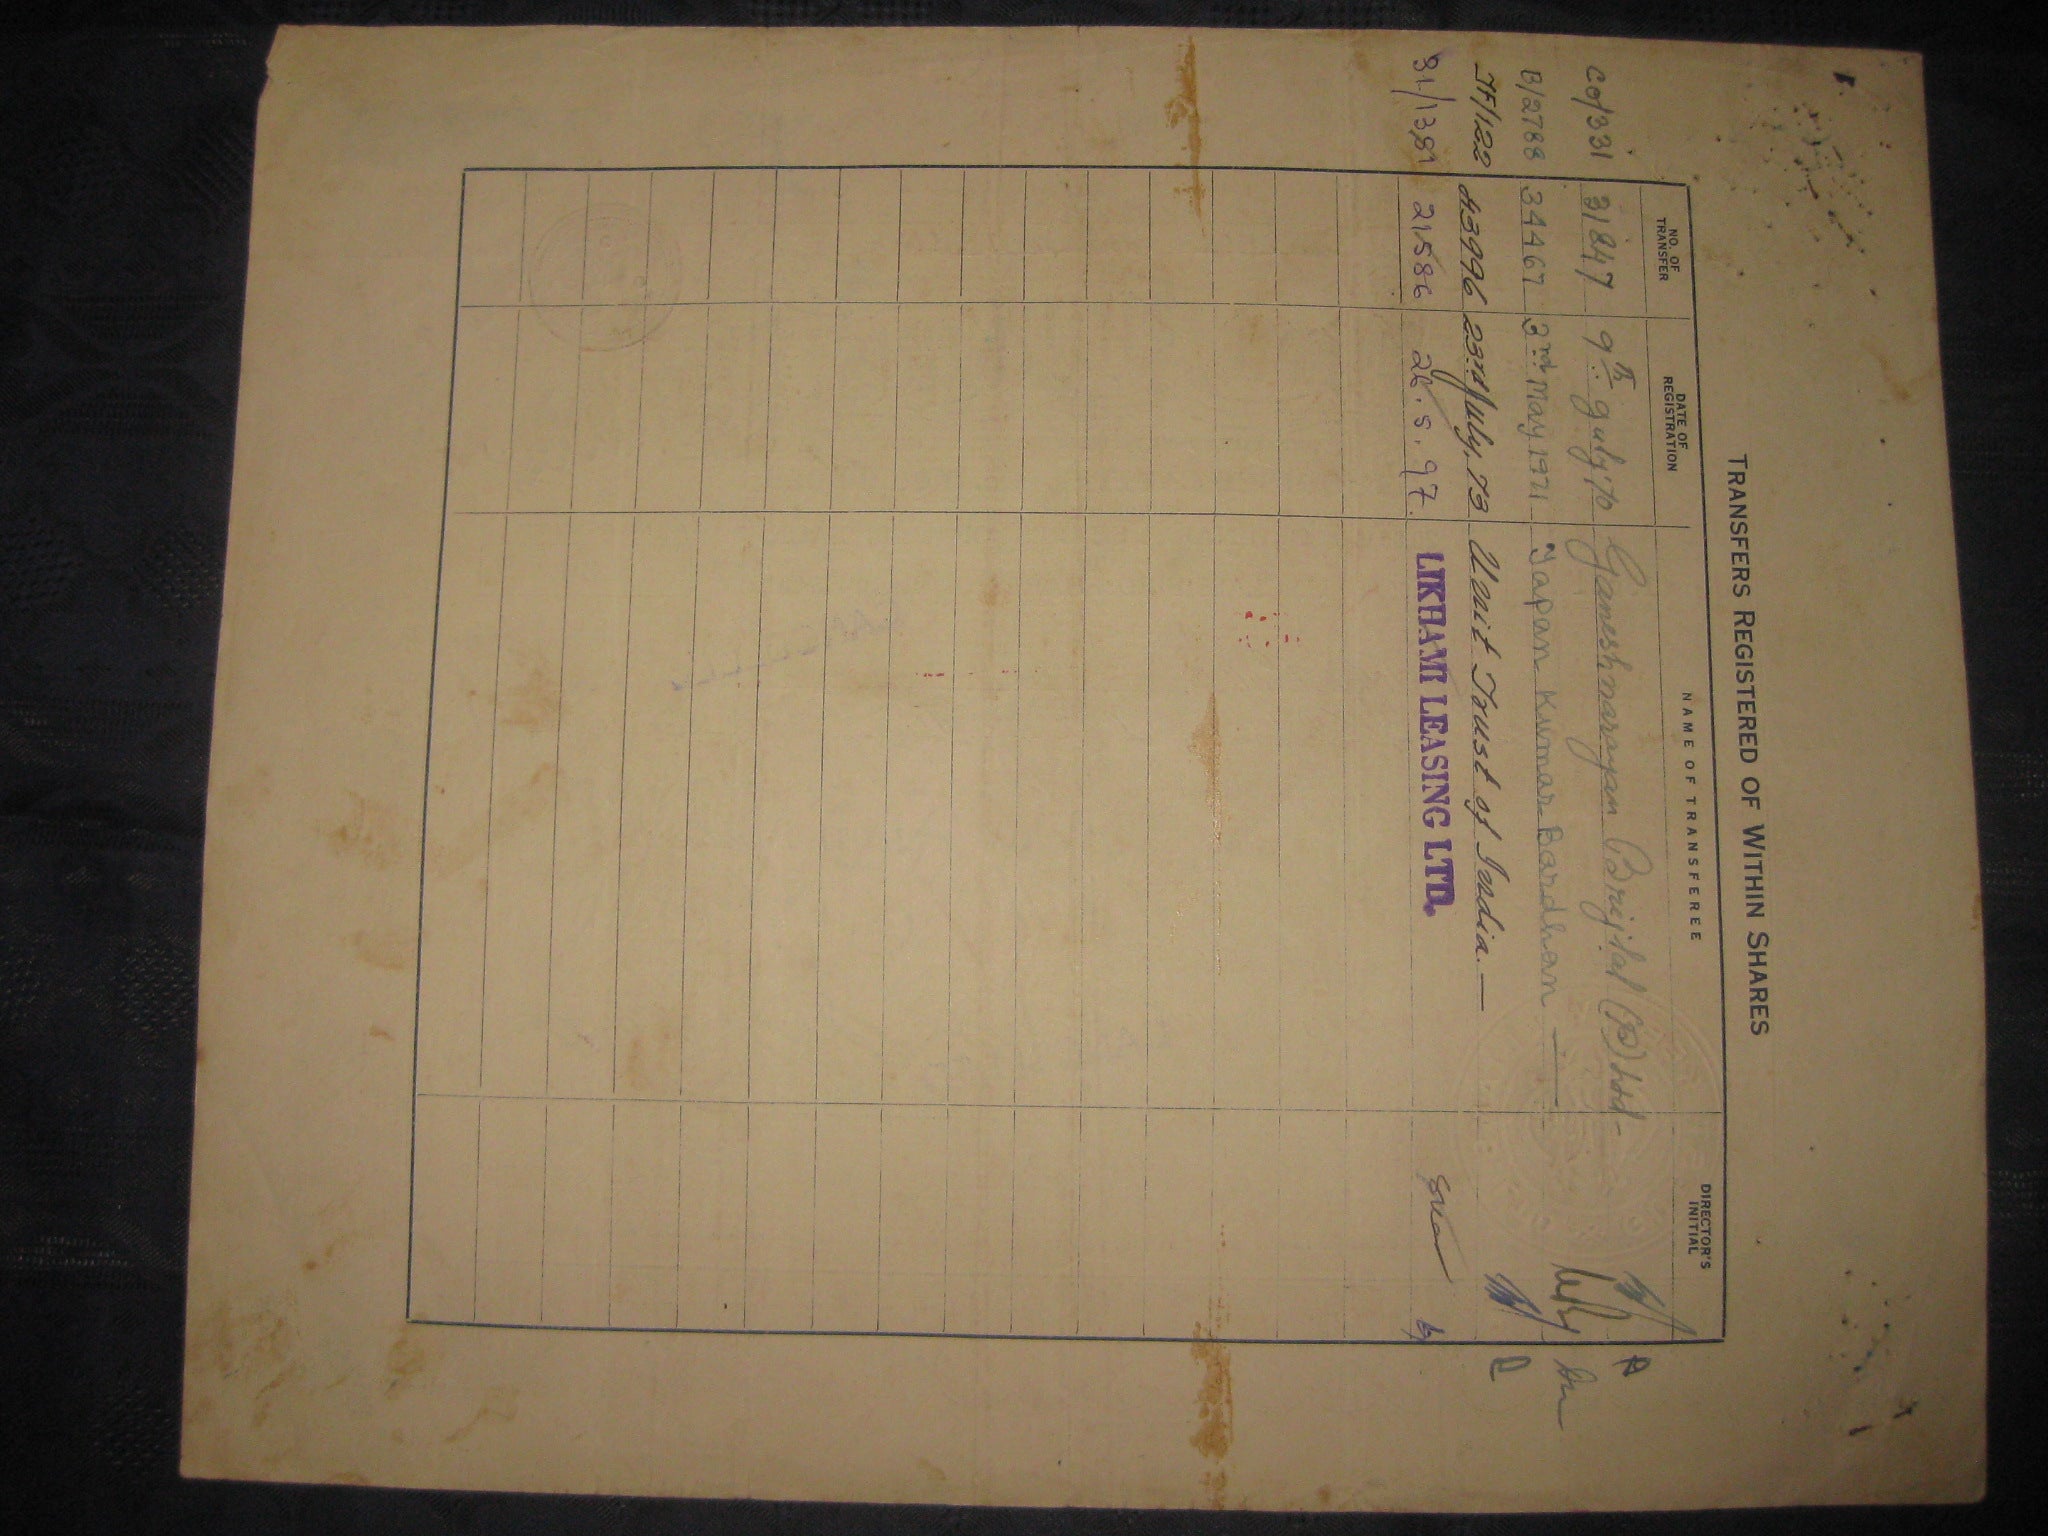 TRANSFERS REGISTERED OF WITHIN SHARES
NO. OF TRANSFER DATE OF REGISTRATION NAME OF TRANSFEREE DIRECTOR'S INITIAL
Co/331 31847 9th July, 70 Ganeshnarayan Brijlal (P) Ltd-
B/2788 34467 3rd May 1971 Tapan Kumar Bardhan
TF/122 43996 23rd July, 73 Unit Trust of India.—
31/1381 21586 26.5.97. LIKHAMI LEASING LTD.